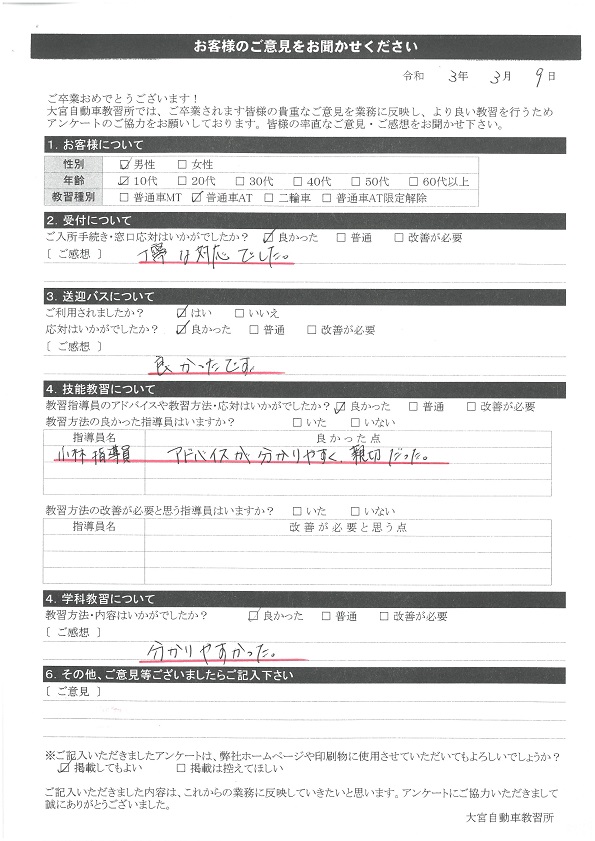 お客様のご意見をお聞かせください
令和 3年 3月 9日
ご卒業おめでとうございます！
大宮自動車教習所では、ご卒業されます皆様の貴重なご意見を業務に反映し、より良い教習を行うため
アンケートのご協力をお願いしております。皆様の率直なご意見・ご感想をお聞かせ下さい。
1. お客様について
性別 ☑ 男性 □ 女性
年齢 ☑ 10代 □ 20代 □ 30代 □ 40代 □ 50代 □ 60代以上
教習種別 □ 普通車MT ☑ 普通車AT □ 二輪車 □ 普通車AT限定解除
2. 受付について
ご入所手続き・窓口応対はいかがでしたか？ ☑ 良かった □ 普通 □ 改善が必要
［ ご感想 ］ 丁寧な対応でした。
3. 送迎バスについて
ご利用されましたか？ ☑ はい □ いいえ
応対はいかがでしたか？ ☑ 良かった □ 普通 □ 改善が必要
［ ご感想 ］
良かったです。
4. 技能教習について
教習指導員のアドバイスや教習方法・応対はいかがでしたか？ ☑ 良かった □ 普通 □ 改善が必要
教習方法の良かった指導員はいますか？ □ いた □ いない
指導員名 良かった点
小林指導員 アドバイスが分かりやすく、親切だった。
教習方法の改善が必要と思う指導員はいますか？ □ いた □ いない
指導員名 改善が必要と思う点
4. 学科教習について
教習方法・内容はいかがでしたか？ ☑ 良かった □ 普通 □ 改善が必要
［ ご感想 ］
分かりやすかった。
6. その他、ご意見等ございましたらご記入下さい
［ ご意見 ］
※ご記入いただきましたアンケートは、弊社ホームページや印刷物に使用させていただいてもよろしいでしょうか？
☑ 掲載してもよい □ 掲載は控えてほしい
ご記入いただきました内容は、これからの業務に反映していきたいと思います。アンケートにご協力いただきまして
誠にありがとうございました。
大宮自動車教習所